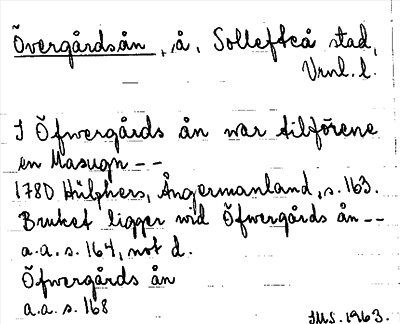 Övergårdsån, å, Sollefteå stad,
Vrnl. l.
I Öfwergårds ån war tilförene
en Masugn --
1780 Hülphers, Ångermanland, s. 163.
Bruket ligger wid Öfwergårds ån --
a.a. s. 164, not d.
Öfwergårds ån
a.a. s. 168
IMS. 1963.